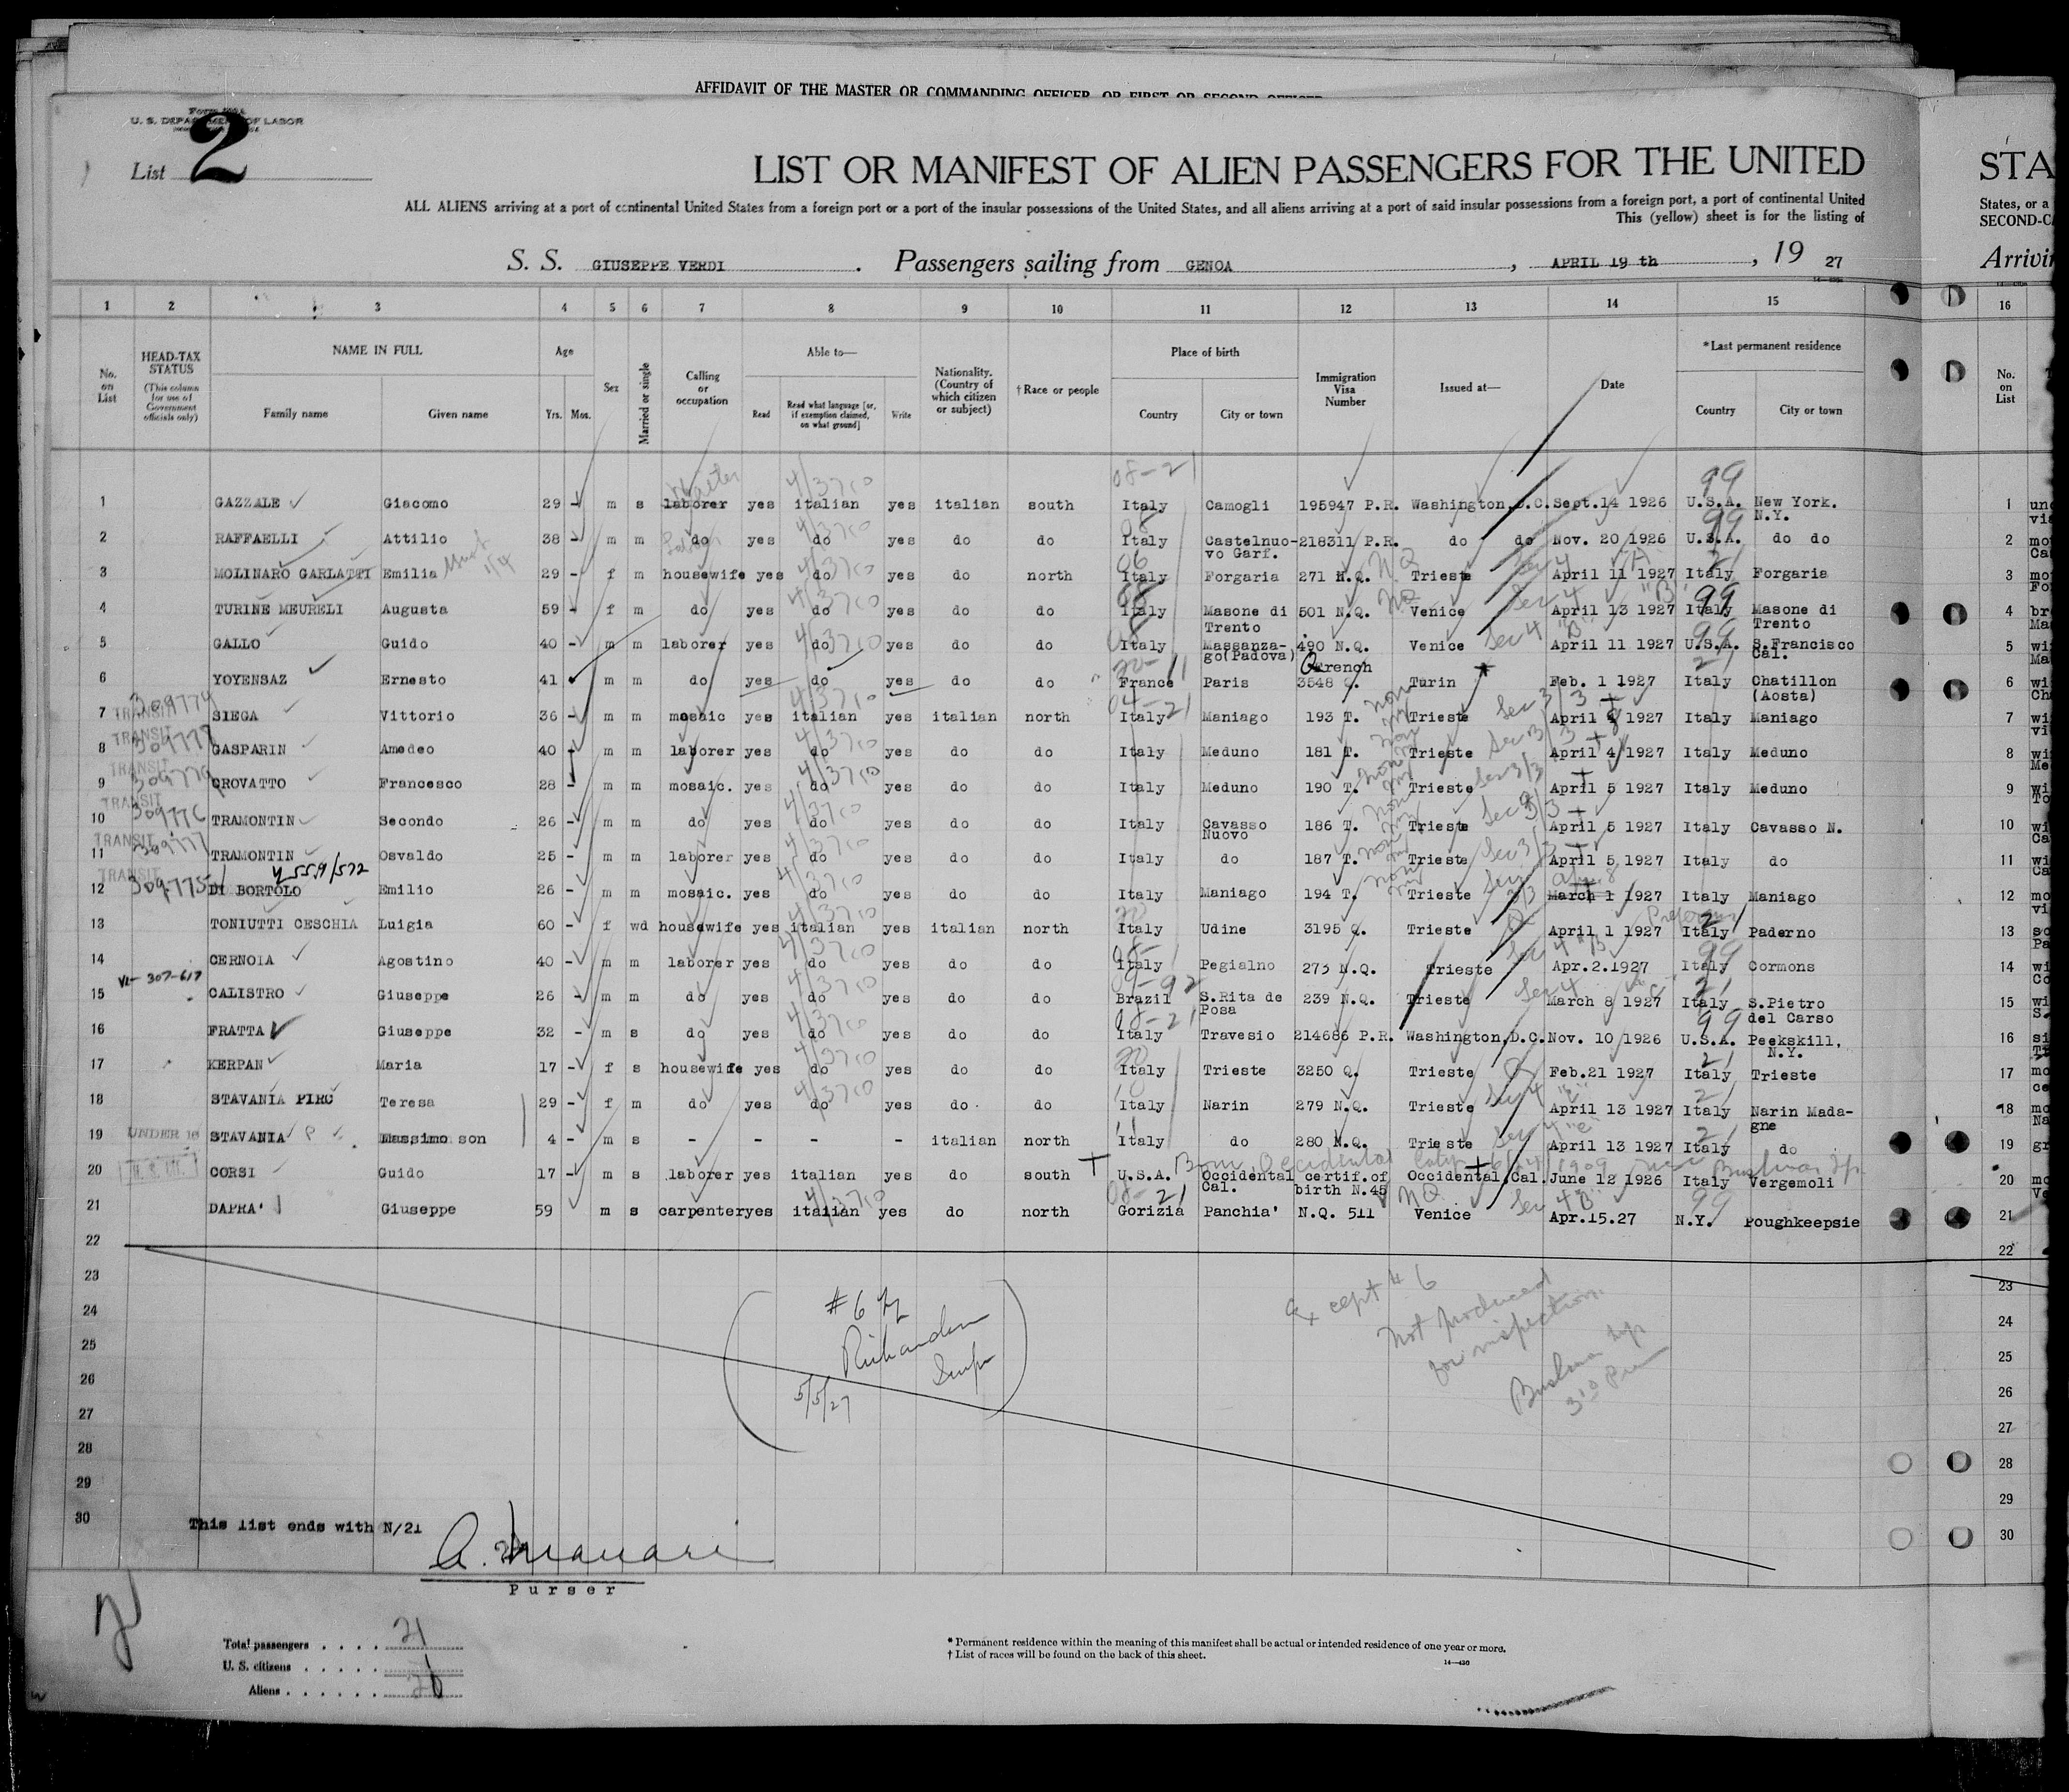 AFFIDAVIT OF THE MASTER OR COMMANDING OFFICER, OR FIRST OR SECOND OFFICER
U. S. DEPARTMENT OF LABOR
List 2
LIST OR MANIFEST OF ALIEN PASSENGERS FOR THE UNITED
STA
ALL ALIENS arriving at a port of continental United States from a foreign port or a port of the insular possessions of the United States, and all aliens arriving at a port of said insular possessions from a foreign port, a port of continental United
States, or a
This (yellow) sheet is for the listing of
SECOND-CA
S. S. GIUSEPPE VERDI. Passengers sailing from GENOA, APRIL 19 th, 19 27
Arrivin
1 2 3 4 5 6 7 8 9 10 11 12 13 14 15 16
No. on List
HEAD-TAX STATUS (This column for use of Government officials only)
NAME IN FULL Family name Given name
Age Yrs. Mos.
Sex
Married or single
Calling or occupation
Able to— Read Read what language [or, if exemption claimed, on what ground] Write
Nationality. (Country of which citizen or subject)
† Race or people
Place of birth Country City or town
Immigration Visa Number
Issued at—
Date
*Last permanent residence Country City or town
No. on List
1 GAZZALE Giacomo 29 - m s laborer Waiter yes italian yes italian south Italy Camogli 195947 P.R. Washington,D.C. Sept.14 1926 U.S.A. New York. N.Y. 1
2 RAFFAELLI Attilio 38 - m m do yes do yes do do Italy Castelnuo-vo Garf. 218311 P.R. do do Nov. 20 1926 U.S.A. do do 2
3 MOLINARO GARLATTI Emilia 29 - f m housewife yes do yes do north Italy Forgaria 271 N.Q. Trieste April 11 1927 Italy Forgaria 3
4 TURINE MEURELI Augusta 59 - f m do yes do yes do do Italy Masone di Trento 501 N.Q. Venice April 13 1927 Italy Masone di Trento 4
5 GALLO Guido 40 - m m laborer yes do yes do do Italy Massanza-go(Padova) 490 N.Q. Venice April 11 1927 U.S.A. S.Francisco Cal. 5
6 YOYENSAZ Ernesto 41 m m do yes do yes do do France Paris French 3548 Q. Turin Feb. 1 1927 Italy Chatillon (Aosta) 6
7 TRANSIT 309774 SIEGA Vittorio 36 - m m mosaic yes italian yes italian north Italy Maniago 193 T. Trieste April 4 1927 Italy Maniago 7
8 TRANSIT GASPARIN Amedeo 40 - m m laborer yes do yes do do Italy Meduno 181 T. Trieste April 4 1927 Italy Meduno 8
9 TRANSIT CROVATTO Francesco 28 - m m mosaic. yes do yes do do Italy Meduno 190 T. Trieste April 5 1927 Italy Meduno 9
10 TRANSIT 309776 TRAMONTIN Secondo 26 - m m do yes do yes do do Italy Cavasso Nuovo 186 T. Trieste April 5 1927 Italy Cavasso N. 10
11 TRANSIT 309777 TRAMONTIN Osvaldo 25 - m m laborer yes do yes do do Italy do 187 T. Trieste April 5 1927 Italy do 11
12 TRANSIT 309775 DI BORTOLO Emilio 26 - m m mosaic. yes do yes do do Italy Maniago 194 T. Trieste March 1 1927 Italy Maniago 12
13 TONIUTTI CESCHIA Luigia 60 - f wd housewife yes italian yes italian north Italy Udine 3195 Q. Trieste April 1 1927 Italy Paderno 13
14 CERNOIA Agostino 40 - m m laborer yes do yes do do Italy Pegialno 273 N.Q. Trieste Apr.2.1927 Italy Cormons 14
15 VL-307-617 CALISTRO Giuseppe 26 - m m do yes do yes do do Brazil S.Rita de Posa 239 N.Q. Trieste March 8 1927 Italy S.Pietro del Carso 15
16 FRATTA Giuseppe 32 - m s do yes do yes do do Italy Travesio 214686 P.R. Washington,D.C. Nov. 10 1926 U.S.A. Peekskill, N.Y. 16
17 KERPAN Maria 17 - f s housewife yes do yes do do Italy Trieste 3250 Q. Trieste Feb.21 1927 Italy Trieste 17
18 STAVANIA PIRC Teresa 29 - f m do yes do yes do do Italy Narin 279 N.Q. Trieste April 13 1927 Italy Narin Mada-gne 18
19 UNDER 16 STAVANIA P Massimo son 4 - m s - - - - italian north Italy do 280 N.Q. Trieste April 13 1927 Italy do 19
20 CORSI Guido 17 - m s laborer yes italian yes do south U.S.A. Occidental Cal. certif.of birth N.45 Occidental,Cal. June 12 1926 Italy Vergemoli 20
21 DAPRA' Giuseppe 59 m s carpenter yes italian yes do north Gorizia Panchia' N.Q. 511 Venice Apr.15.27 N.Y. Poughkeepsie 21
22 22
23 23
24 24
25 25
26 26
27 27
28 28
29 29
30 30
#6
5/5/27
Except #6
Not produced
for inspection
This list ends with N/21
Purser
Total passengers . . . . 21
U. S. citizens . . . . . 1
Aliens . . . . . . 20
* Permanent residence within the meaning of this manifest shall be actual or intended residence of one year or more.
† List of races will be found on the back of this sheet.
14—430